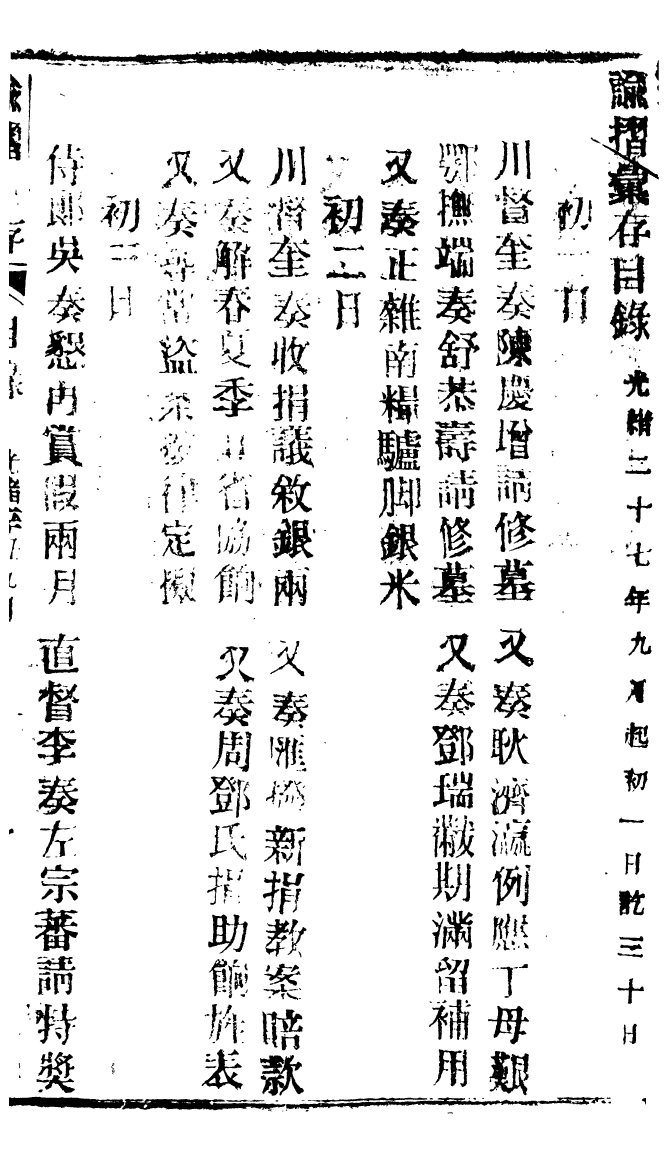 諭摺彙存目錄 光緒二十七年九月起初一日訖三十日
初一日
川督奎奏陳慶增請修墓 又奏耿濟瀛例應丁母艱
鄂撫端奏舒恭壽請修墓 又奏鄧瑞黻期滿留補用
又奏正雜南糧驢脚銀米
初二日
川督奎奏收捐議敘銀兩 又奏匯撥新捐教案賠款
又奏解春夏季 省協餉 又奏周鄧氏捐助餉旌表
又奏尋常盜案 律定擬
初三日
侍郎吳奏懇再賞假兩月 直督李奏左宗蕃請特獎
諭摺 存 目錄